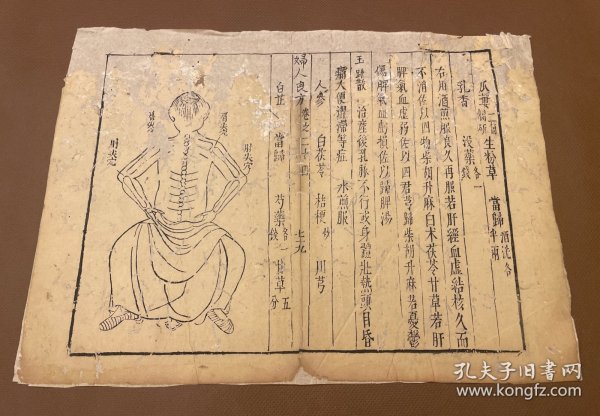 瓜蔞 一個 生粉草 當歸 酒洗各半兩
乳香 沒藥 各一錢
右用酒煎服良久再服若肝經血虛結核久而
不消佐以四物柴胡升麻白术茯苓甘草若肝
脾氣血虛弱佐以四君芎歸柴胡升麻若憂鬱
傷脾氣血虧損佐以歸脾湯
玉露散 治產後乳脉不行或身體壯熱頭目昏
痛大便澀滯等症 水煎服
人參 白茯苓 桔梗 炒 川芎
婦人良方 卷之二十
白芷 當歸 芍藥 各一錢 甘草 五分
肘尖穴
孔夫子旧书网
www.kongfz.com